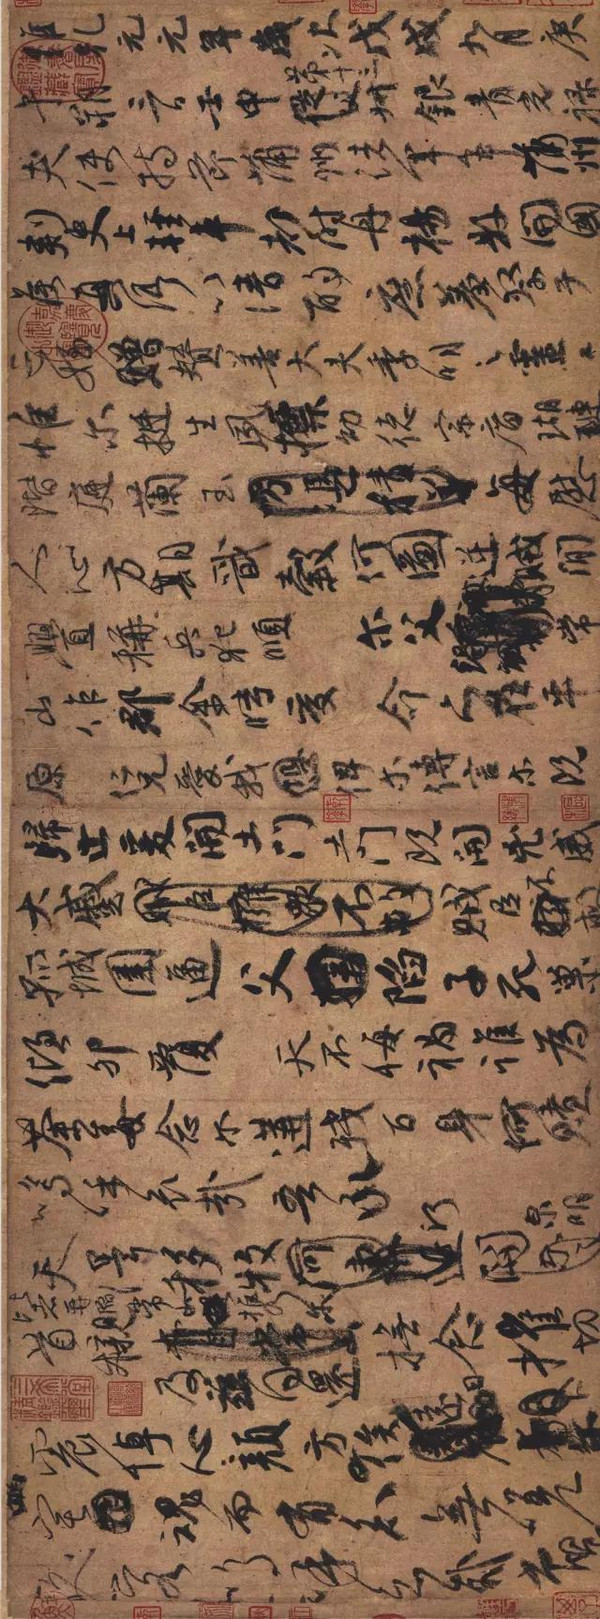 維乾元元年歲次戊戌九月庚
午朔三日壬申第十三叔銀青光祿
夫使持節蒲州諸軍事蒲州
刺史上輕車都尉丹楊縣開國
侯真卿以清酌庶羞祭于亡
姪贈贊善大夫季明之靈曰
惟爾挺生夙標幼德宗廟瑚璉
階庭蘭玉方憑積善每慰
人心方期戩穀何圖逆賊閒
釁稱兵犯順爾父竭誠常
山作郡余時受命亦在平
原仁兄愛我俾爾傳言爾既
歸止爰開土門土門既開凶威
大蹙賊臣擁眾不救賊臣不救
孤城圍逼父陷子死巢
傾卵覆天不悔禍誰為
荼毒念爾遘殘百身何贖
嗚呼哀哉吾承
天澤移牧河關泉明
比者再陷常山攜爾
首櫬及茲同還撫念摧切
震悼心顏方俟遠日卜爾幽
宅魂而有知無嗟
久客嗚呼哀哉尚饗